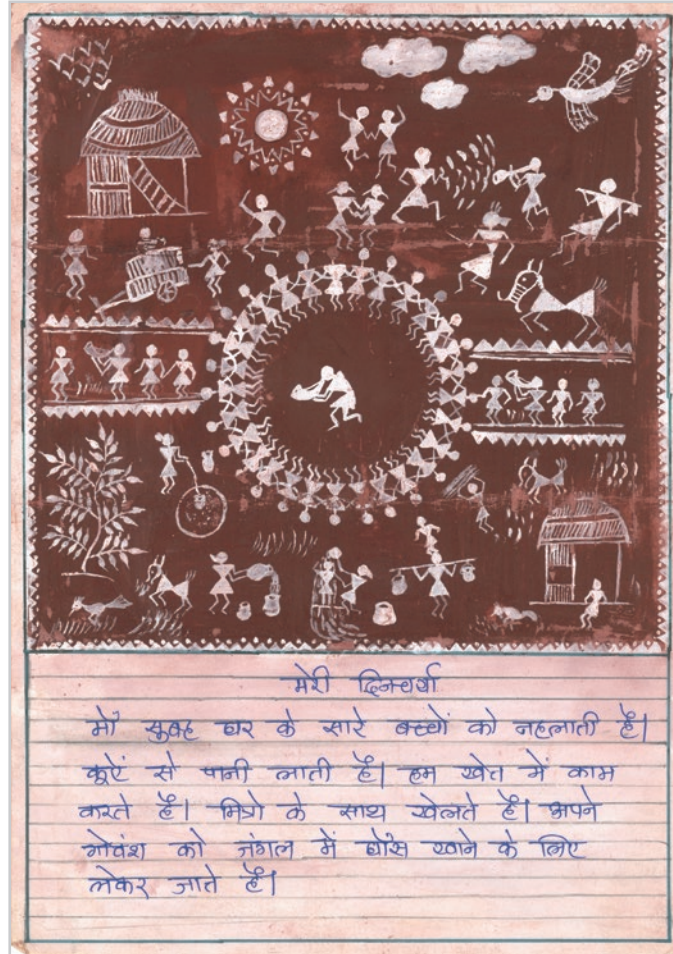 मेरी दिनचर्या
माँ सुबह घर के सारे बच्चों को नहलाती है।
कूऐं से पानी लाती है। हम खेत में काम
करते है। मित्रो के साथ खेलते है। अपने
गोवंश को जंगल में घाँस खाने के लिए
लेकर जाते है।